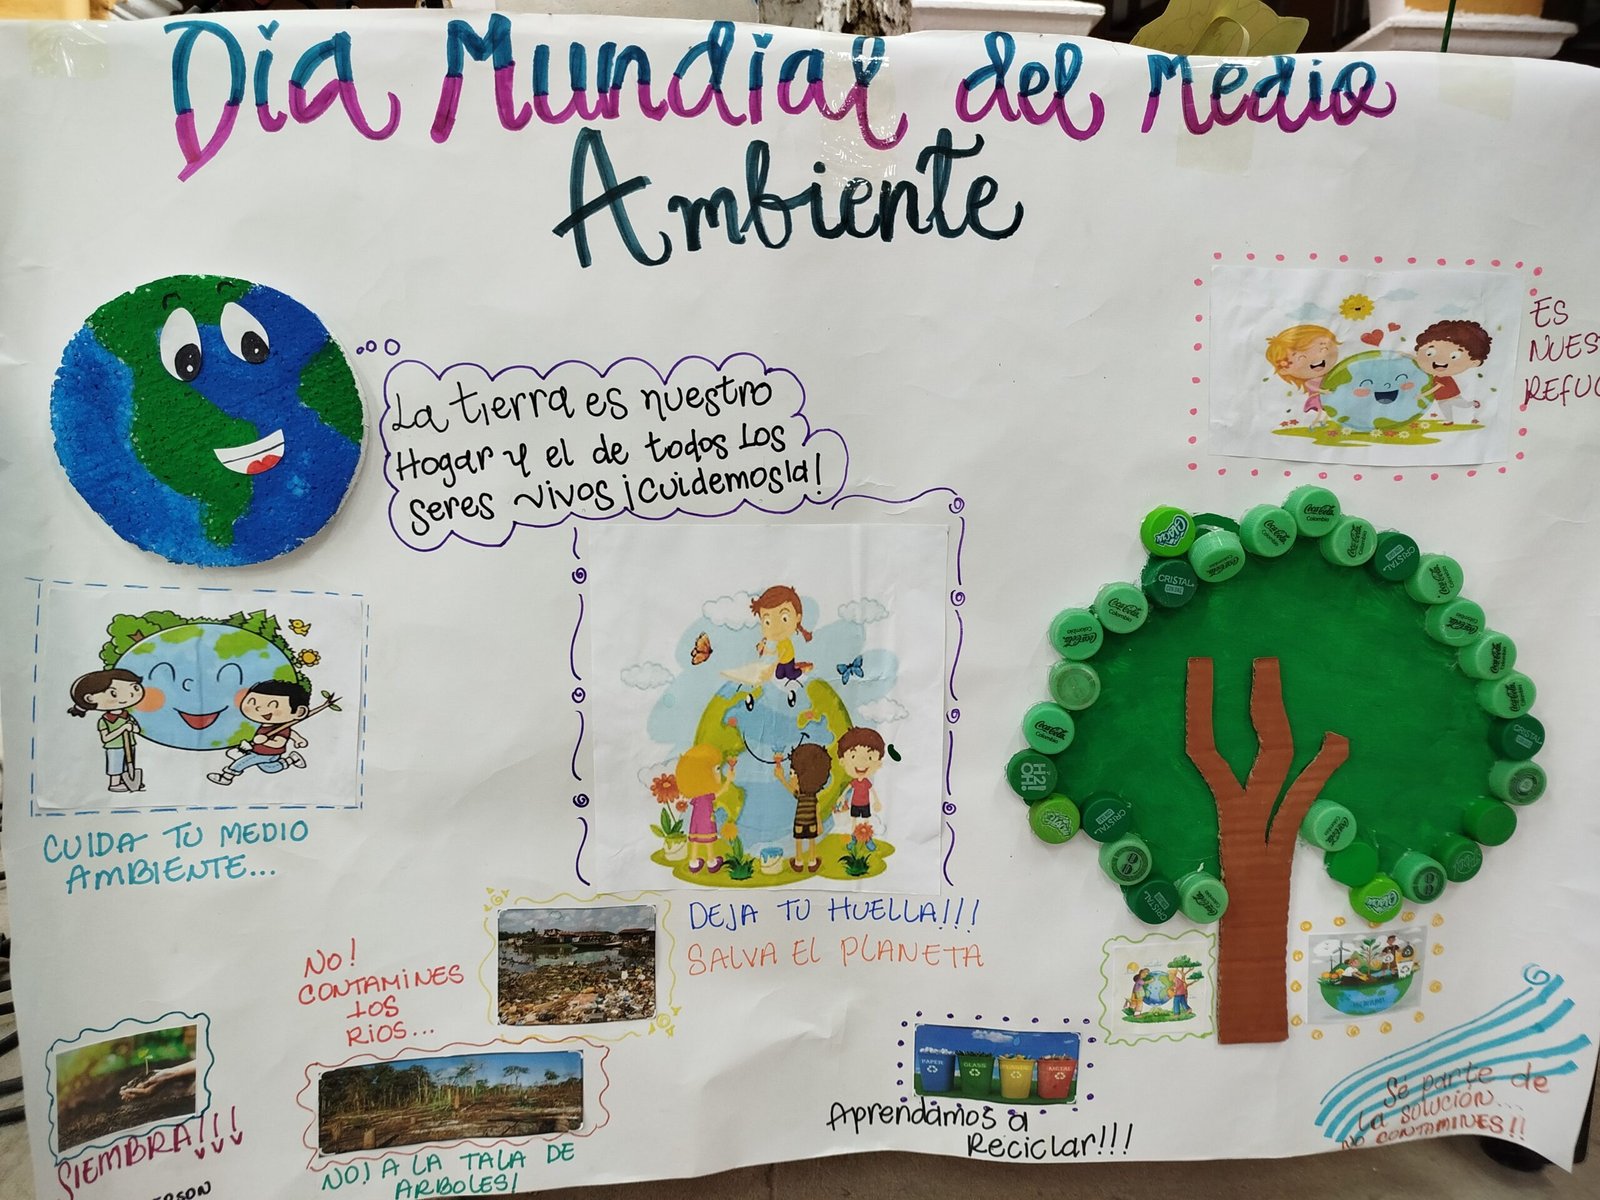 Día Mundial del Medio
Ambiente
La tierra es nuestro
Hogar y el de todos los
seres vivos ¡cuidemosla!
ES
NUES
REFUG
CUIDA TU MEDIO
AMBIENTE...
DEJA TU HUELLA!!!
SALVA EL PLANETA
NO!
CONTAMINES
LOS
RIOS...
SIEMBRA!!!
ERSON
NO! A LA TALA DE
ARBOLES!
PAPER
GLASS
METAL
Aprendamos a
Reciclar!!!
Se parte de
La solución...
NO CONTAMINES!!
Coca-Cola
Colombia
CRISTAL
H2
OH!